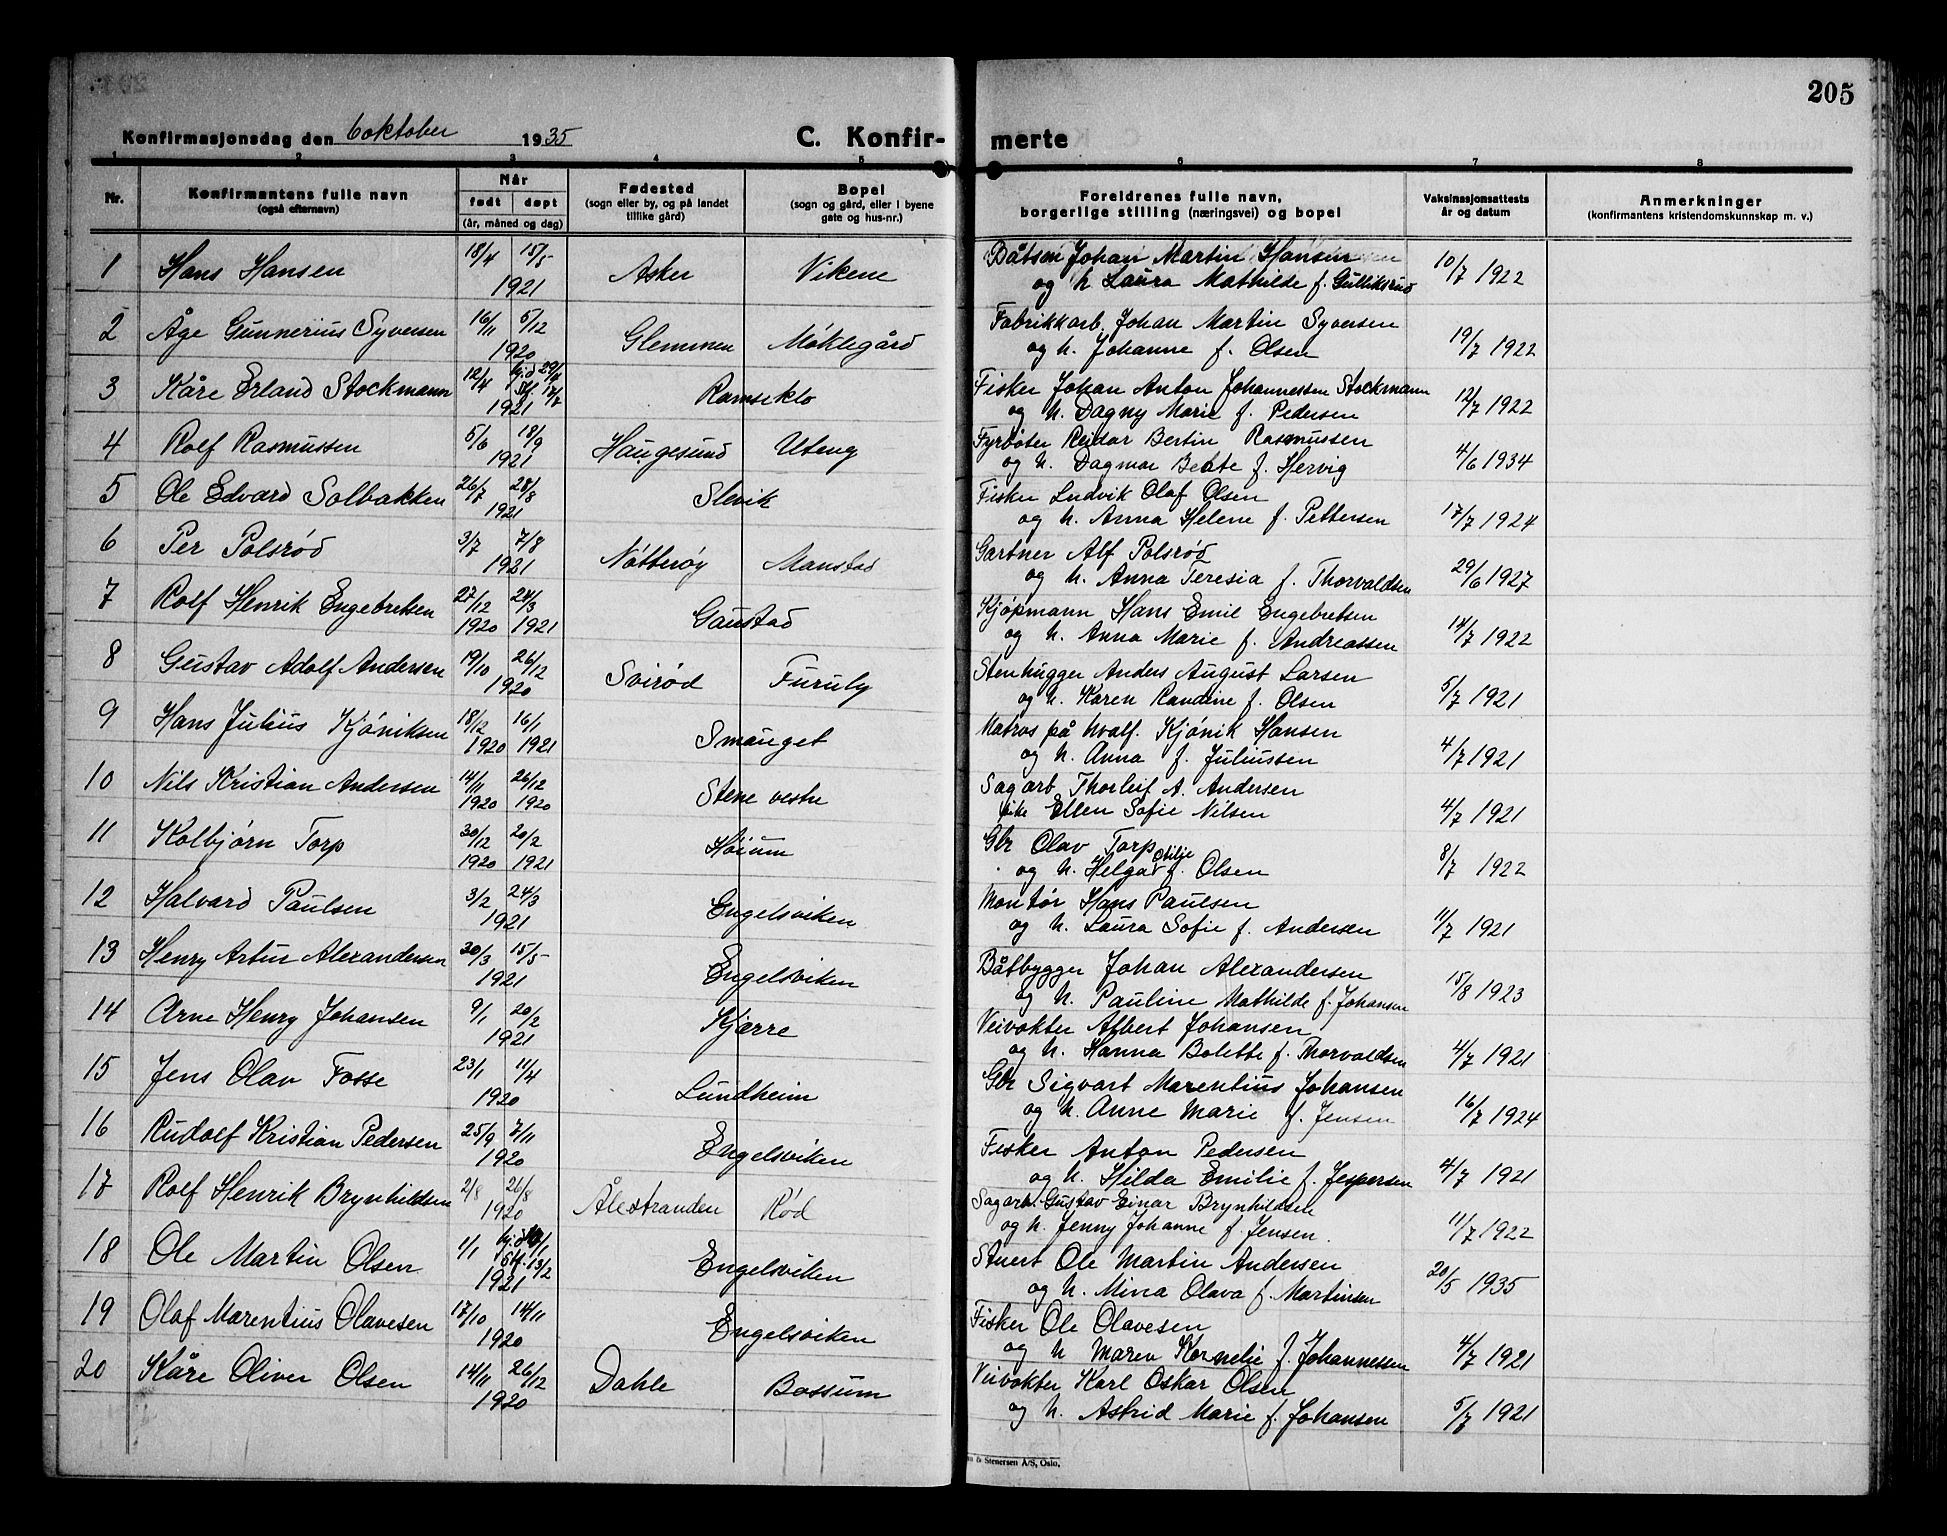 205
Konfirmasjonsdag den 6 oktober 1935 C. Konfir- merte
1 2 3 4 5 6 7 8
Nr.
Konfirmantens fulle navn
(også efternavn)
Når
født døpt
(år, måned og dag)
Fødested
(sogn eller by, og på landet
tillike gård)
Bopel
(sogn og gård, eller i byene
gate og hus-nr.)
Foreldrenes fulle navn,
borgerlige stilling (næringsvei) og bopel
Vaksinasjonsattests
år og datum
Anmerkninger
(konfirmantens kristendomskunnskap m. v.)
1 Hans Hansen 18/4 15/5 1921 Asker Vikene Båtsm Johan Martin Hansen
og h Laura Mathilde f. Gulliksrud 10/7 1922
2 Åge Gunnerius Syversen 16/11 5/12 1920 Glemmen Møklegård Fabrikkarb. Johan Martin Syversen
og h. Johanne f. Olsen 19/7 1922
3 Kåre Erland Stockmann 12/4 hj.d 29/4 Stf. 17/7 1921 Ramseklo Fisker Johan Anton Johannessen Stockmann
og h. Dagny Marie f. Pedersen 12/7 1922
4 Rolf Rasmussen 5/6 18/9 1921 Haugesund Uteng Fyrbøter Reidar Bertin Rasmussen
og h. Dagmar Beate f. Hervig 4/6 1934
5 Ole Edvard Solbakken 26/7 28/8 1921 Slevik Fisker Ludvik Olaf Olsen
og h. Anna Helene f. Pettersen 17/7 1924
6 Per Polsrød 3/7 7/8 1921 Nøtterøy Manstad Gartner Alf Polsrød
og h. Anna Teresia f. Thorvaldsen 29/6 1927
7 Rolf Henrik Engebretsen 27/12 1920 24/3 1921 Gaustad Kjøpmann Hans Emil Engebretsen
og h. Anna Marie f. Andreassen 14/7 1922
8 Gustav Adolf Andersen 19/10 26/12 1920 Svirød Furuly Stenhugger Anders August Larsen
og h. Karen Randine f. Olsen 5/7 1921
9 Hans Julius Kjøniksen 18/12 1920 16/1 1921 Smauget Matros på hvalf. Kjønik Hansen
og h. Anna f. Juliussen 4/7 1921
10 Nils Kristian Andersen 14/11 1920 26/12 1920 Stene vestre Sagarb Thorleif A. Andersen
pike Ellen Sofie Nilsen 4/7 1921
11 Kolbjørn Torp 30/12 1920 20/2 1921 Høium Gbr Olav Torp
og h. Helga Otilje f. Olsen 8/7 1922
12 Halvard Paulsen 3/2 24/3 1921 Engelsviken Montør Hans Paulsen
og h. Laura Sofie f. Andersen 11/7 1921
13 Henry Artur Alexandersen 30/3 15/5 1921 Engelsviken Båtbygger Johan Alexandersen
og h. Pauline Mathilde f. Johansen 15/8 1923
14 Arne Henry Johansen 9/1 20/2 1921 Kjærre Veivokter Albert Johansen
og h. Hanna Bolette f. Thorvaldsen 4/7 1921
15 Jens Olav Fosse 23/1 11/4 1920 Lundheim Gbr Sigvart Marentius Johansen
og h. Anne Marie f. Jensen 16/7 1924
16 Rudolf Kristian Pedersen 25/9 7/11 1920 Engelsviken Fisker Anton Pedersen
og h. Hilda Emilie f. Jespersen 4/7 1921
17 Rolf Henrik Brynhildsen 2/8 26/8 1920 Ålestranden Rød Sagarb. Gustav Einar Brynhildsen
og h. Jenny Johanne f Jensen. 11/7 1922
18 Ole Martin Olsen 1/1 hj.d Stf. 13/2 1921 Engelsviken Stuert Ole Martin Andersen
og h. Mina Olava f. Martinsen 20/5 1935
19 Olaf Marentius Olavesen 17/10 14/11 1920 Engelsviken Fisker Ole Olavesen
og h Maren Kornelie f. Johannessen 4/7 1921
20 Kåre Oliver Olsen 14/11 26/12 1920 Dahle Bossum Veivokter Karl Oskar Olsen
og h. Astrid Marie f. Johansen 5/7 1921
& Stenersen A/S, Oslo.